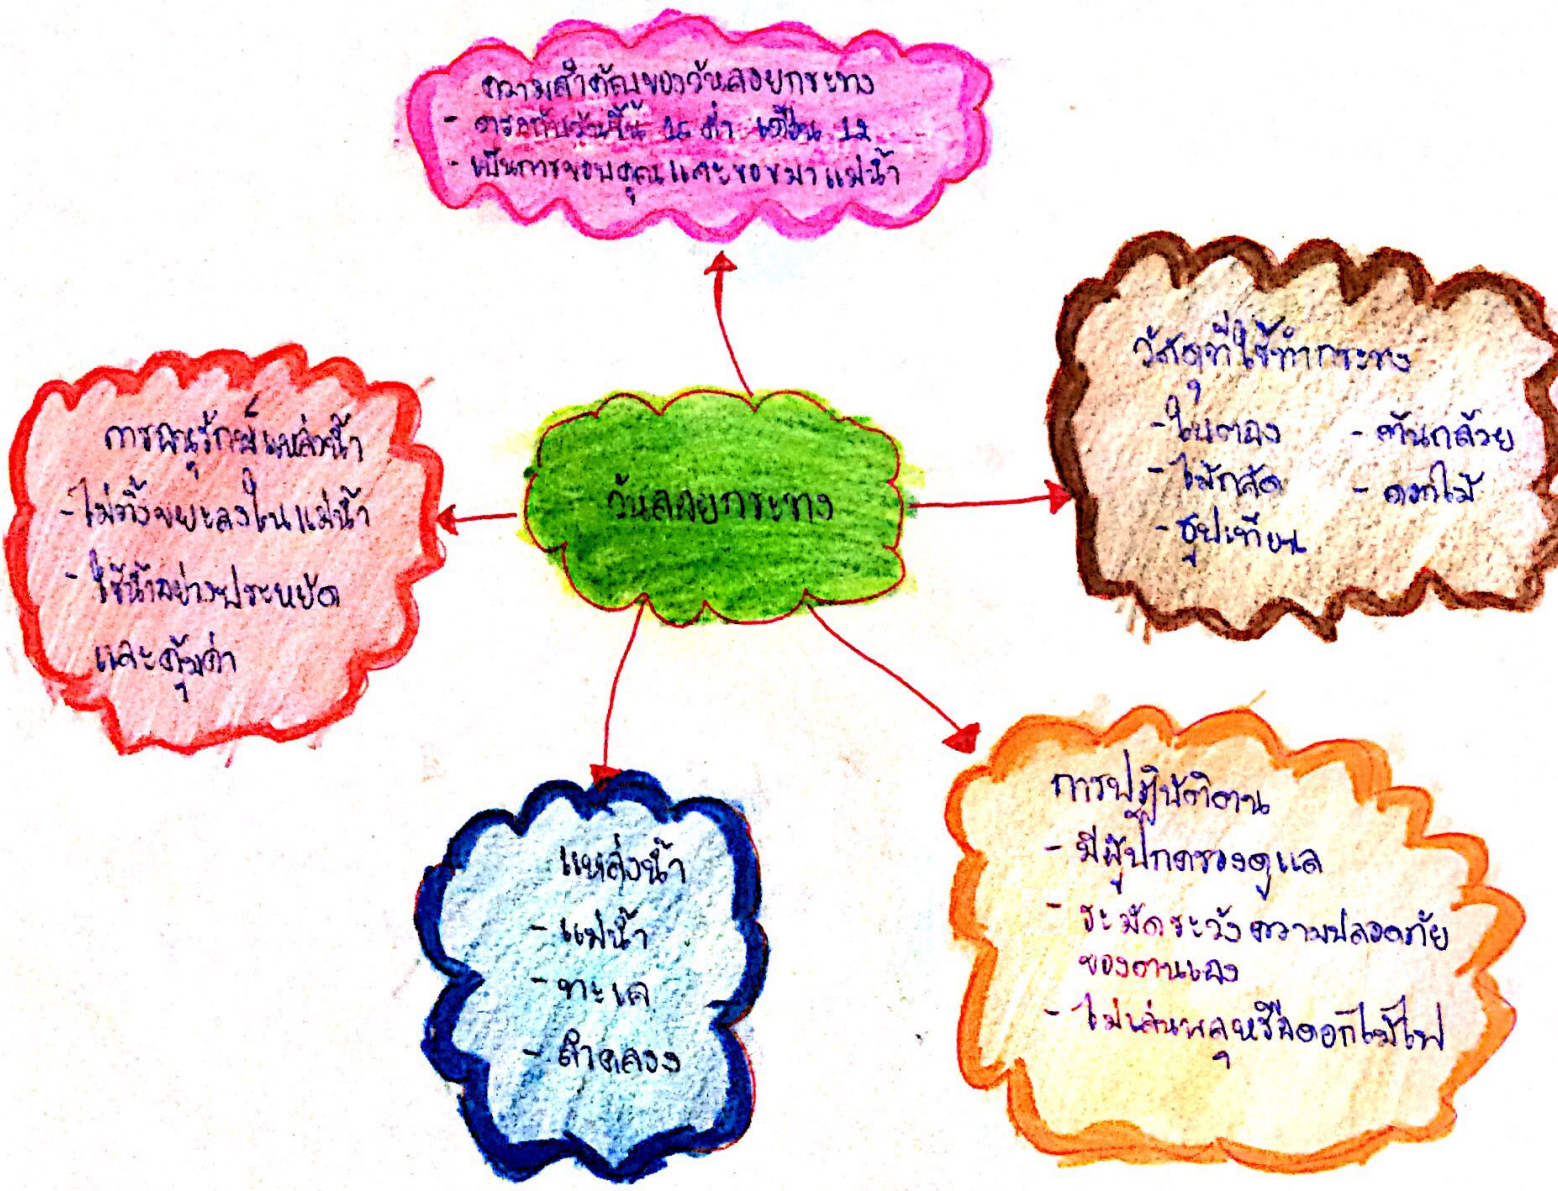 ความสำคัญของวันลอยกระทง
- ตรงกับวันขึ้น 15 ค่ำ เดือน 12
- เป็นการขอบคุณและขอขมาแม่น้ำ
วัสดุที่ใช้ทำกระทง
- ใบตอง - ต้นกล้วย
- ไม้กลัด - ดอกไม้
- ธูปเทียน
การอนุรักษ์แหล่งน้ำ
- ไม่ทิ้งขยะลงในแม่น้ำ
- ใช้น้ำอย่างประหยัด
และคุ้มค่า
วันลอยกระทง
แหล่งน้ำ
- แม่น้ำ
- ทะเล
- ลำคลอง
การปฏิบัติตน
- มีผู้ปกครองดูแล
- ระมัดระวังความปลอดภัย
ของตนเอง
- ไม่เล่นพลุหรือดอกไม้ไฟ